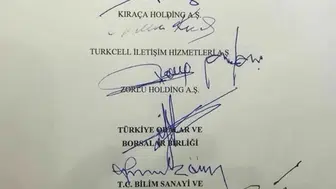 KIRAÇA HOLDING A.Ş.
TURKCELL İLETİŞİM HİZMETLERİ A.Ş.
ZORLU HOLDING A.Ş.
TÜRKİYE ODALAR VE
BORSALAR BİRLİĞİ
T.C. BİLİM SANAYİ VE